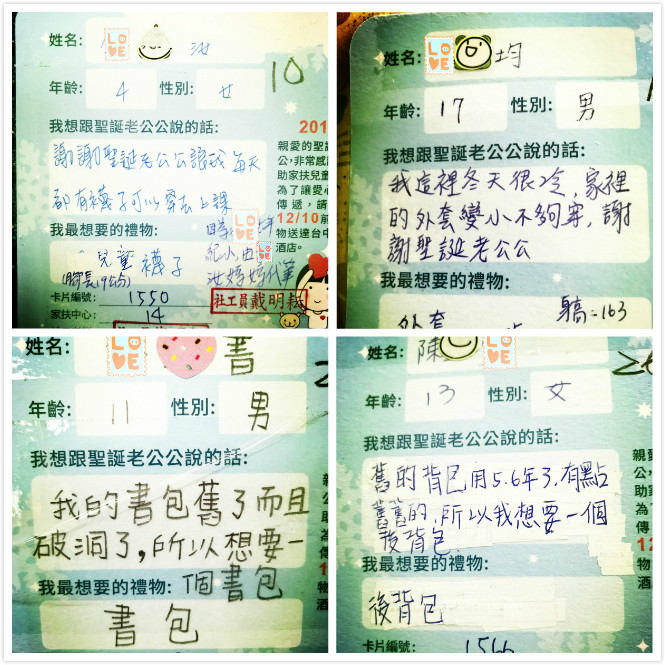 姓名: LOVE 汝
10
年齡: 4 性別: 女
我想跟聖誕老公公說的話:
謝謝聖誕老公公讓我每天
都有襪子可以穿去上課
我最想要的禮物:
兒童襪子
(腳長19公分)
汝媽媽代筆
卡片編號: 1550
家扶中心: 14
社工員戴明耘
201
親愛的聖誕
公,非常感
助家扶兒童
為了讓愛心
傳遞,請
12/10前
物送達台中
酒店。
姓名: LOVE 均
年齡: 17 性別: 男
我想跟聖誕老公公說的話:
我這裡冬天很冷,家裡
的外套變小不夠穿,謝
謝聖誕老公公
我最想要的禮物:
身高:163
外套
姓名: LOVE 書
年齡: 11 性別: 男
我想跟聖誕老公公說的話:
我的書包舊了而且
破洞了,所以想要一
我最想要的禮物: 個書包
書包
姓名: 陳 LOVE
年齡: 13 性別: 女
我想跟聖誕老公公說的話:
舊的背包用5.6年了,有點
舊舊的,所以我想要一個
後背包
我最想要的禮物:
後背包
卡片編號: 1566